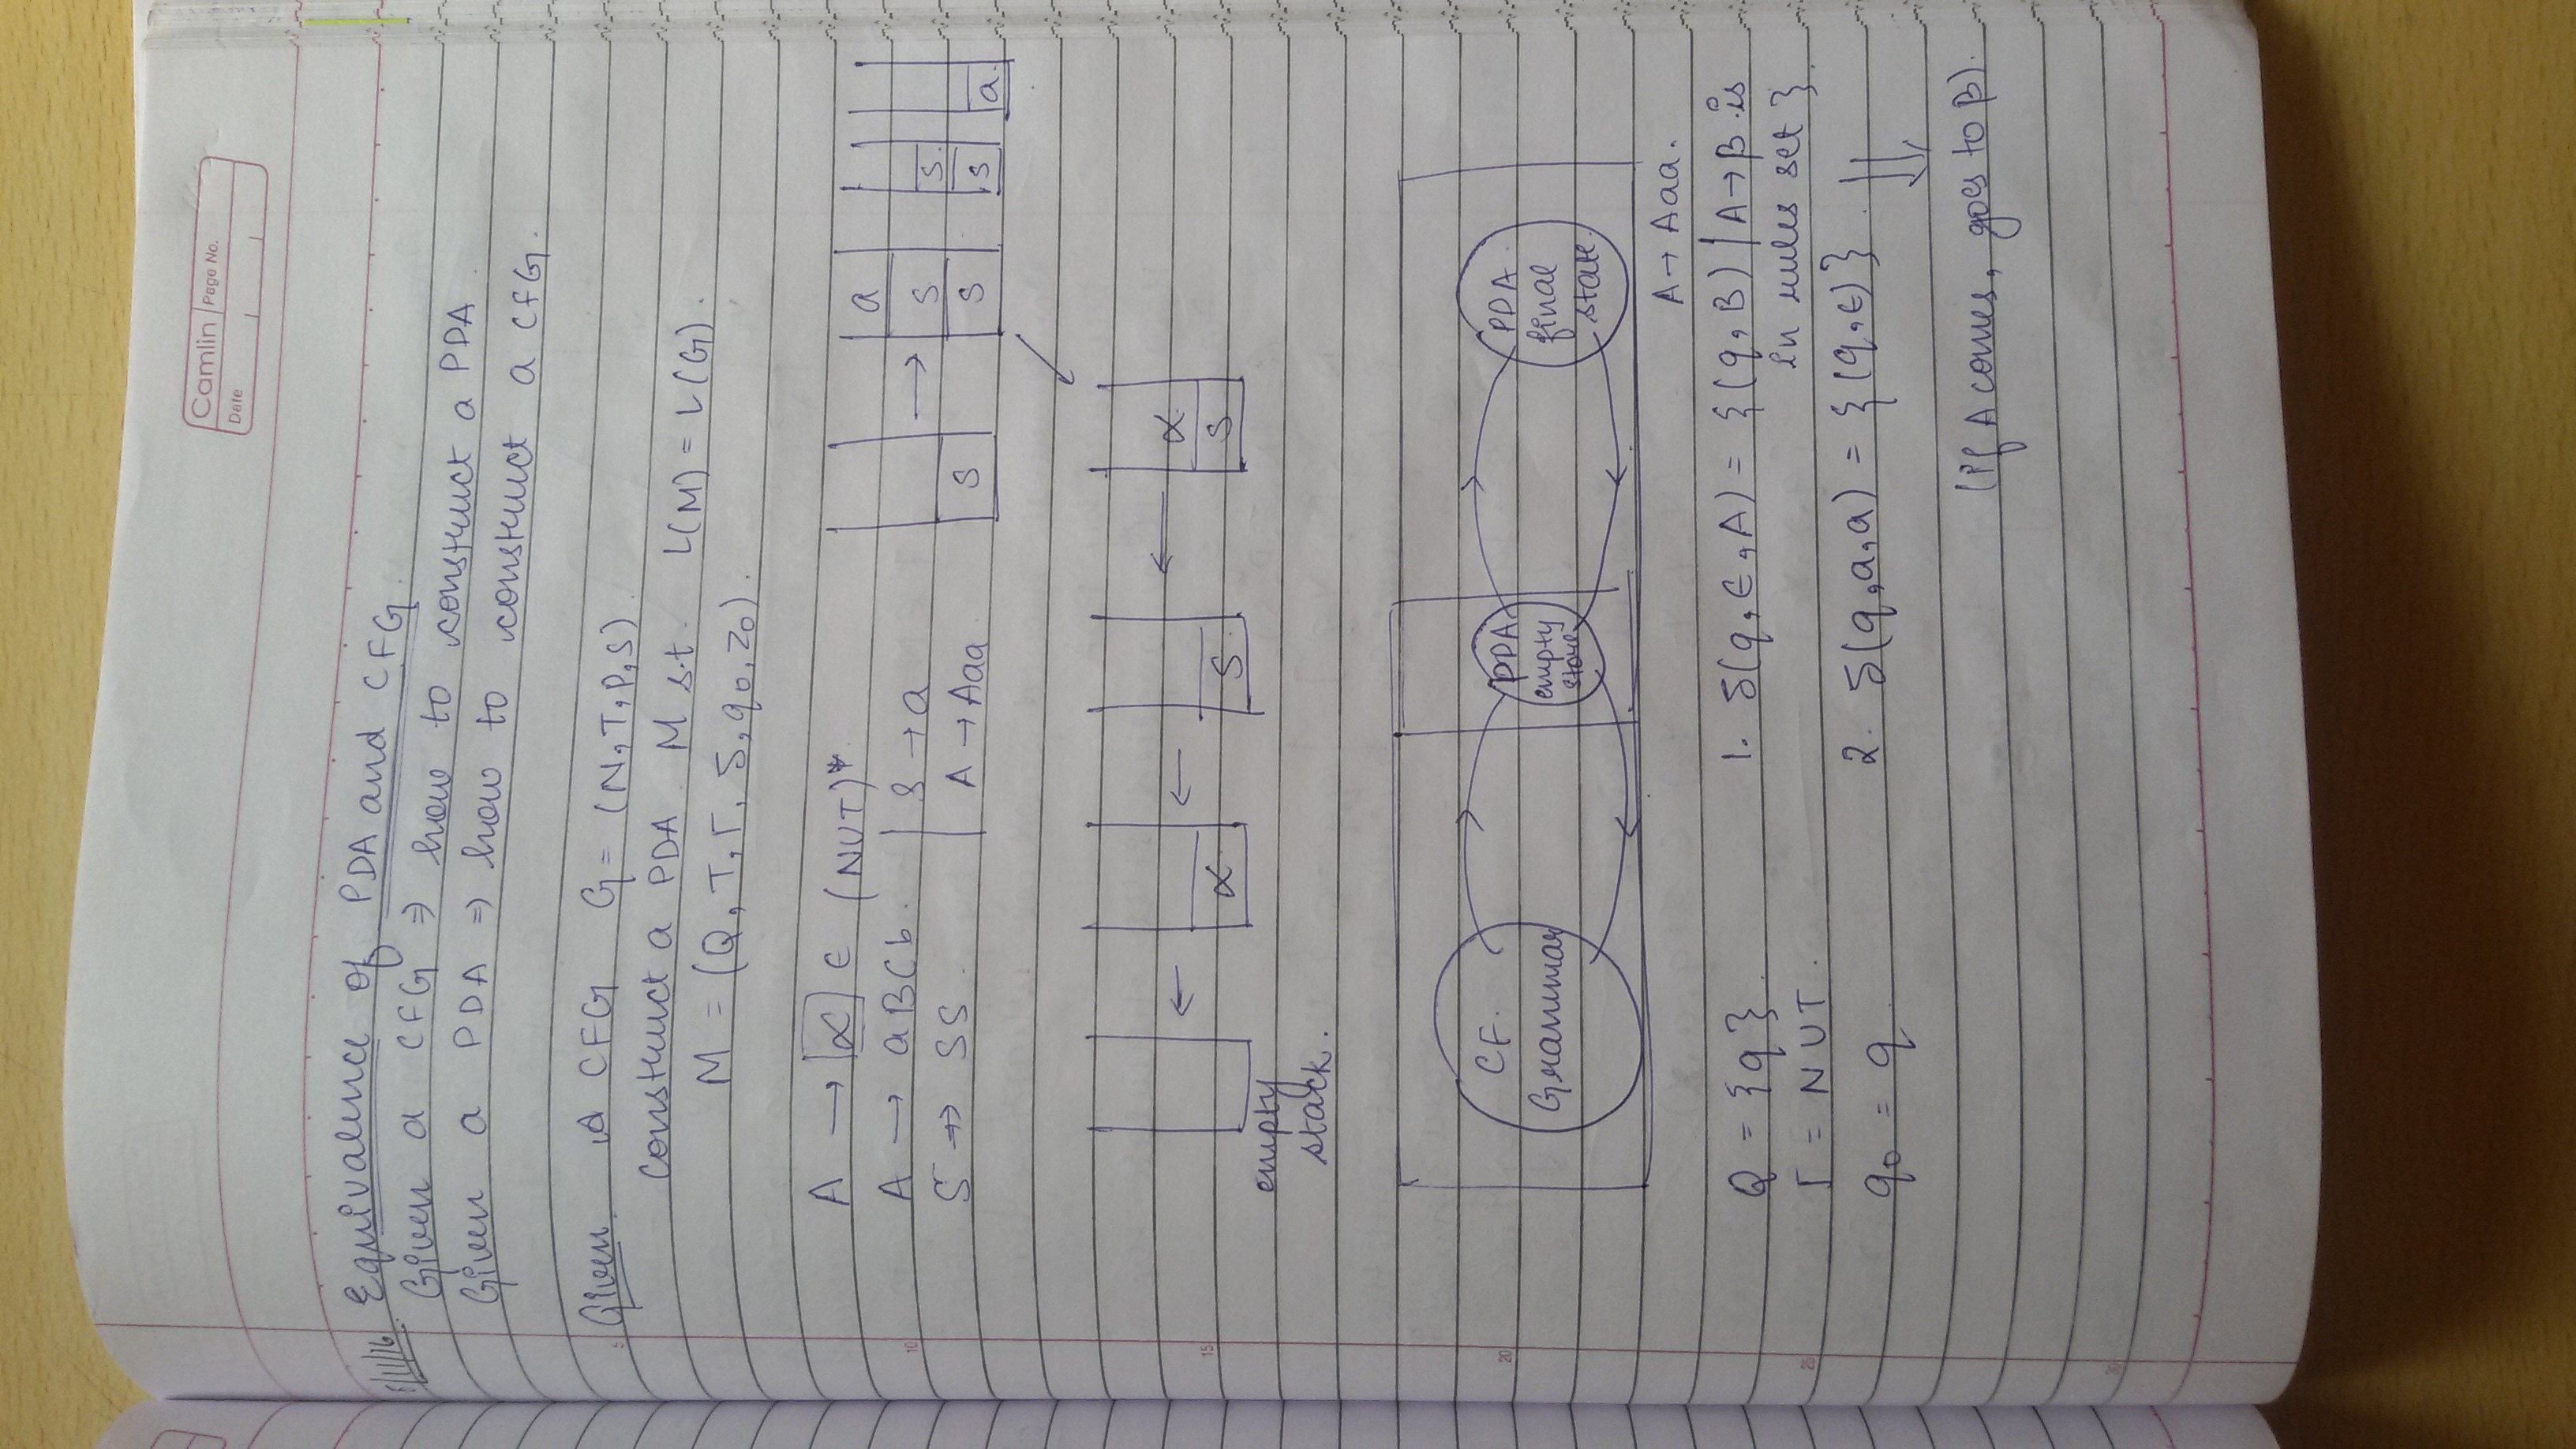 Camlin Page No.
Date
/11/16 Equivalence of PDA and CFG.
Given a CFG ⇒ how to construct a PDA.
Given a PDA ⇒ how to construct a CFG.
5
Given A CFG G = (N, T, P, S).
Construct a PDA M s.t. L(M) = L(G).
M = (Q, T, Γ, δ, q0, z0).
A → α ∈ (NUT)*
10
A → aBCb. | S → a
S → SS. | A → Aaa
S → a S S S S a
15
← α ← S ← α S
empty
stack.
20
CF. PDA PDA
Grammar empty final
store state.
A → Aaa.
Q = {q}. 1. δ(q, ε, A) = {(q, B) | A → β is
in rules set}.
25
Γ = NUT.
2. δ(q, a, a) = {(q, ε)}.
q0 = q.
(if A comes, goes to β).
30